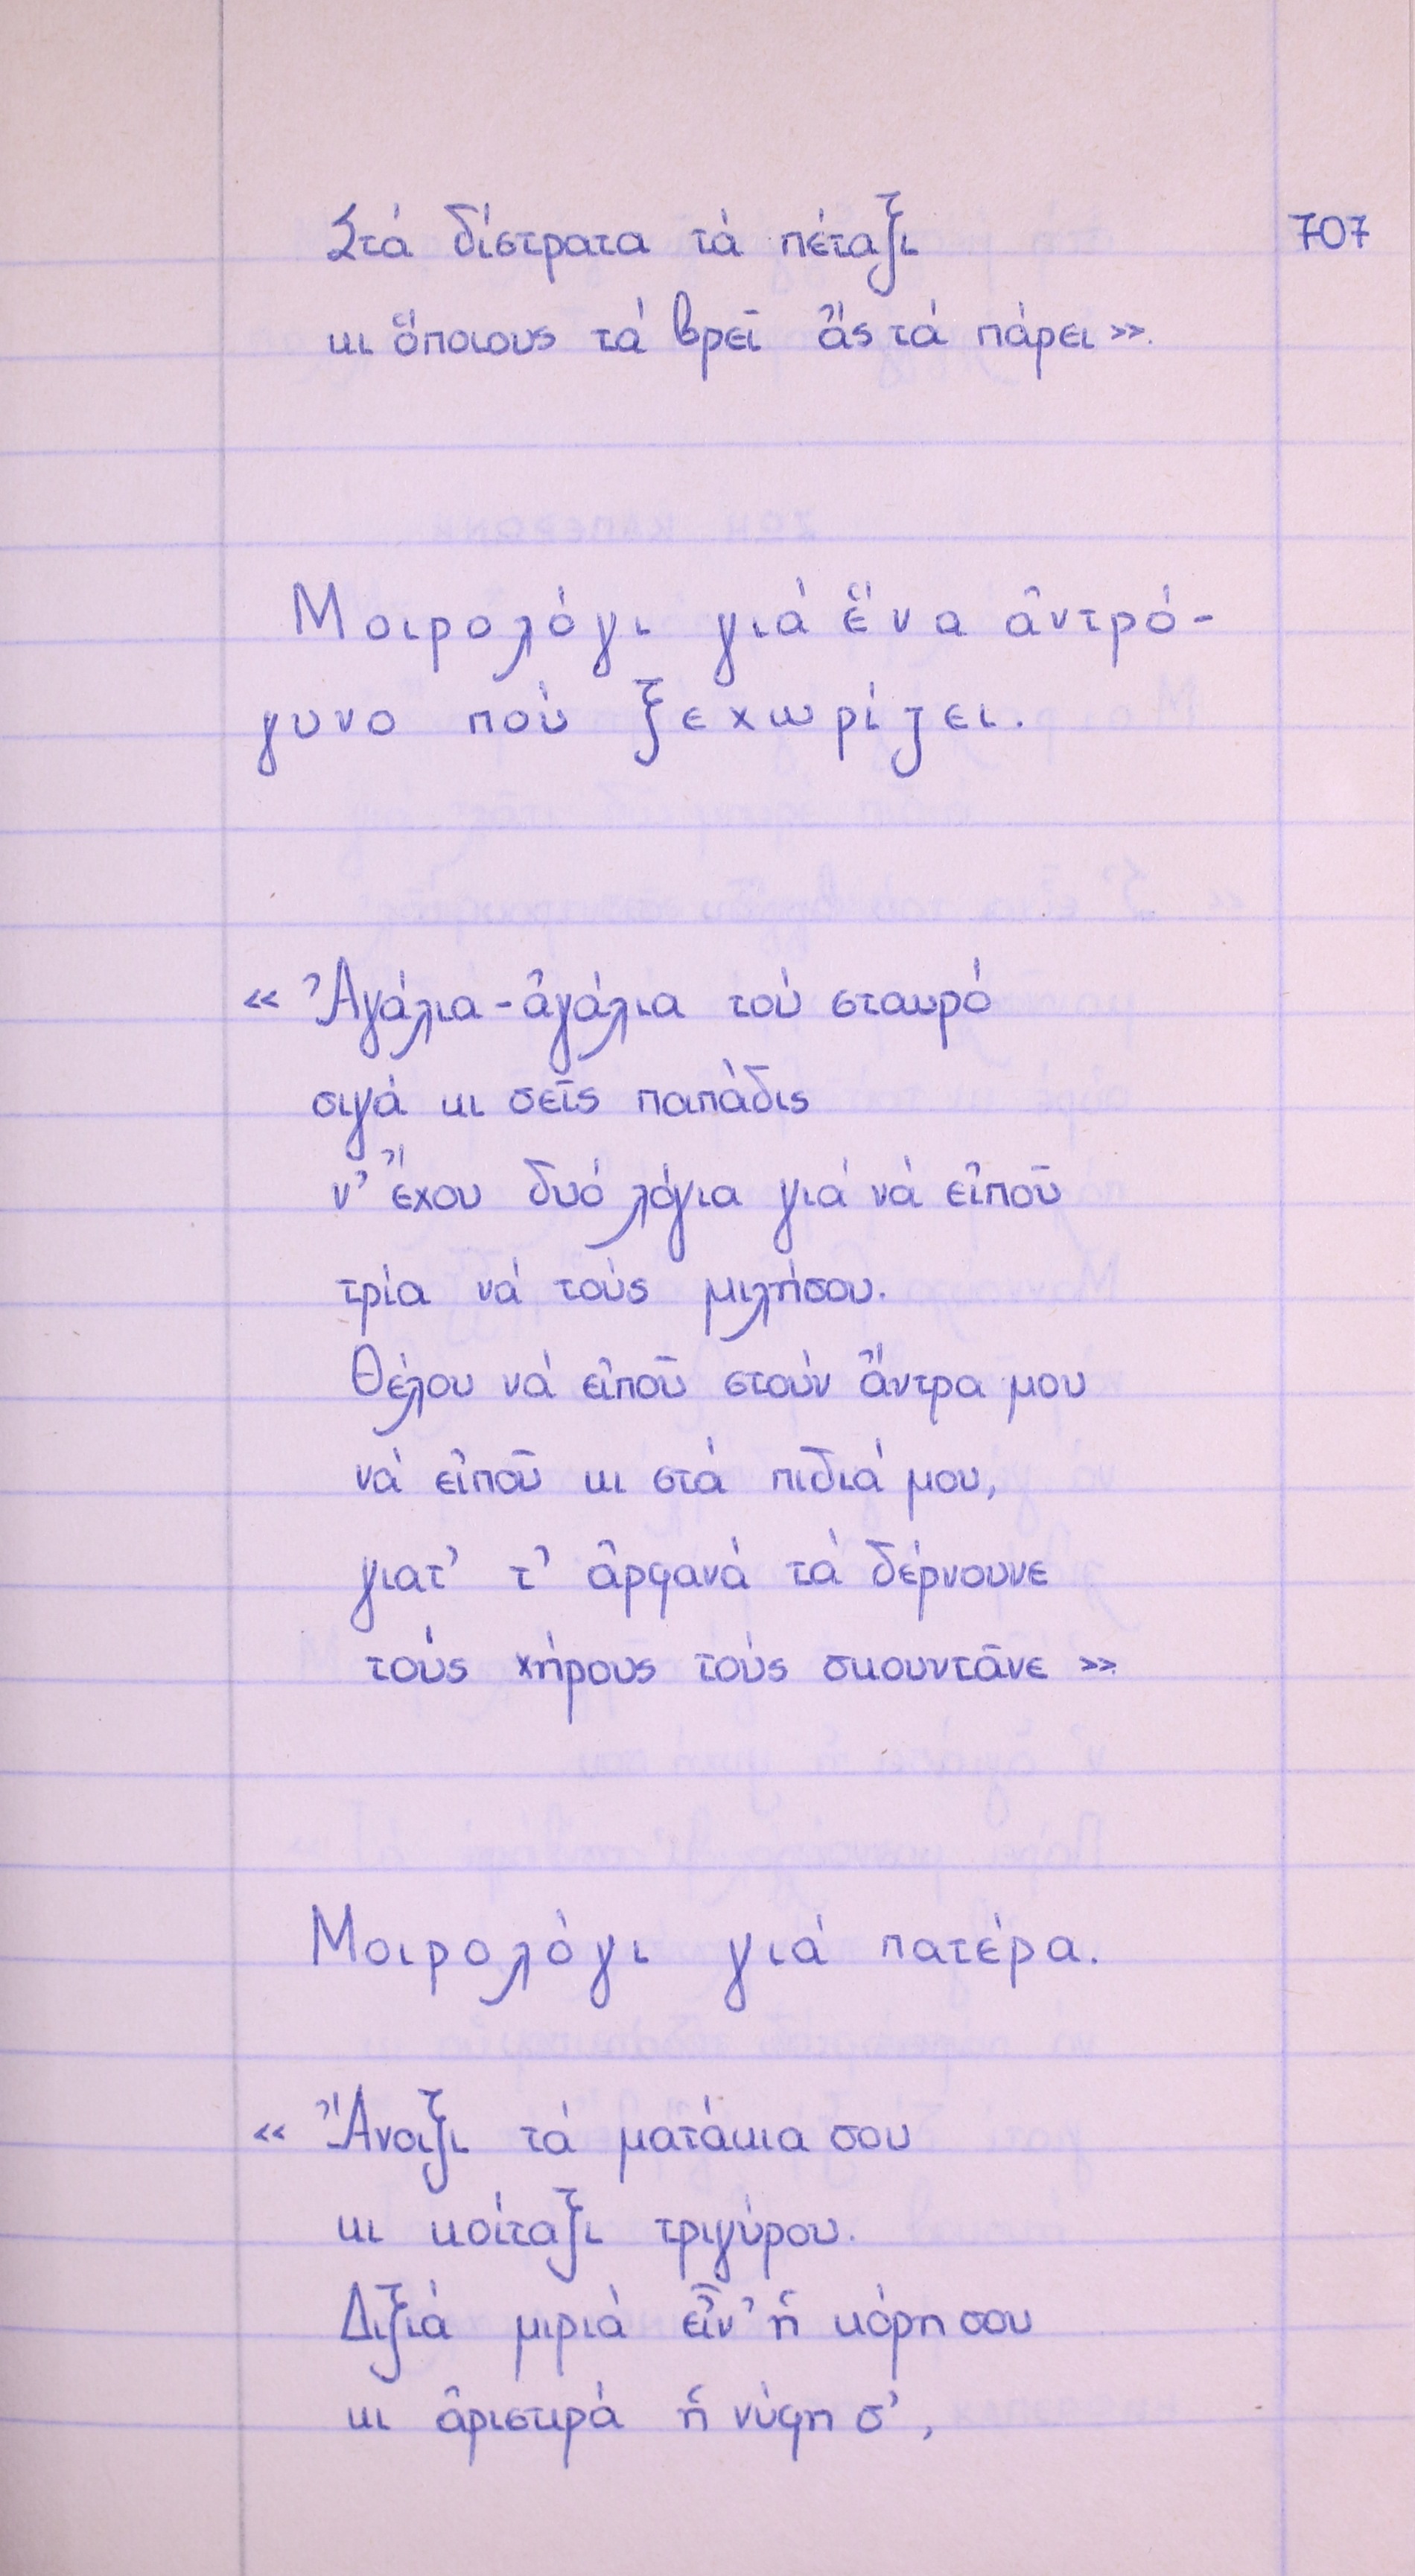 Στά δίστρατα τά πέταξι 707
κι ὅποιους τά βρεῖ ἄς τά πάρει».
Μοιρολόγι γιά ἕνα ἀντρό-
γυνο πού ξεχωρίζει.
« Ἀγάλια - ἀγάλια τού σταυρό
σιγά κι σεῖς παπάδις
ν' ἔχου δυό λόγια γιά νά εἰποῦ
τρία νά τούς μιλήσου.
Θέλου νά εἰποῦ στούν ἄντρα μου
νά εἰποῦ κι στά πιδιά μου,
γιατ' τ' ἀρφανά τά δέρνουνε
τούς χήρους τούς σκουντᾶνε »
Μοιρολόγι γιά πατέρα.
« Ἄνοιξι τά ματάκια σου
κι κοίταξι τριγύρου.
Διξιά μιριά εἶν' ἡ κόρη σου
κι ἀριστιρά ἡ νύφη σ',